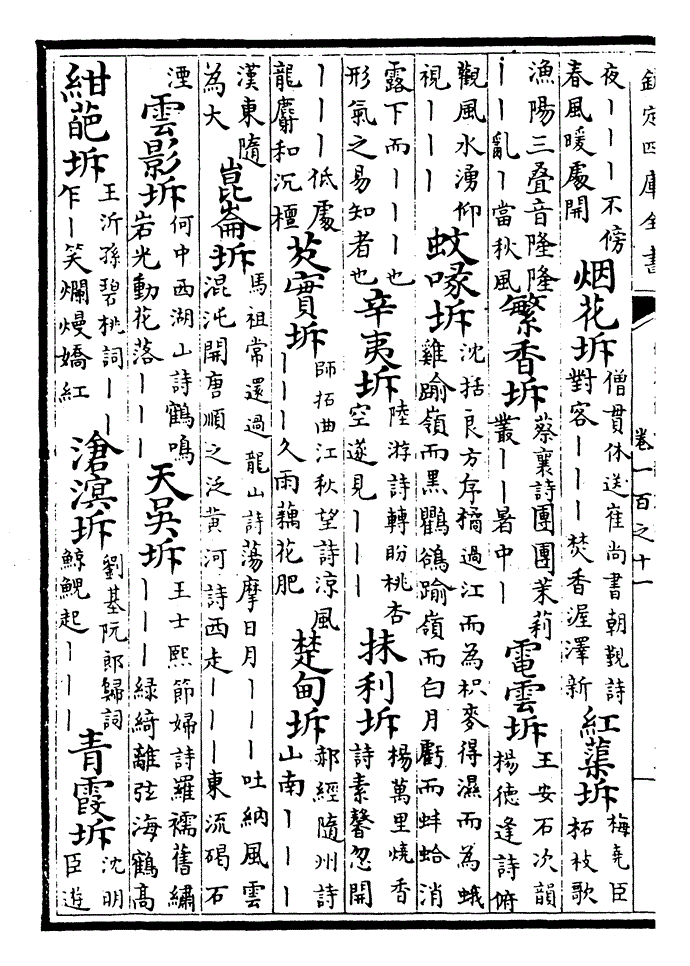 欽定四庫全書
卷一百之十一
夜｜｜｜不傍
春風暖處開
烟花坼
僧貫休送崔尚書朝覲詩
對客｜｜｜焚香渥澤新
紅蕖坼
梅堯臣
柘枝歌
漁陽三叠音隆隆
｜｜亂｜當秋風
繁香坼
蔡襄詩團團茉莉
叢｜｜暑中｜
電雲坼
王安石次韻
楊德逢詩俯
觀風水湧仰
視｜｜｜
蚊喙坼
沈括良方序橘過江而為枳麥得濕而為蛾
雞踰嶺而黒鸜鵒踰嶺而白月虧而蚌蛤消
露下而｜｜｜也
形氣之易知者也
辛夷坼
陸游詩轉盼桃杏
空遂見｜｜｜
抹利坼
楊萬里燒香
詩素馨忽開
｜｜｜低處
龍麝和沉檀
芡實坼
師拓曲江秋望詩涼風
｜｜｜久雨藕花肥
楚甸坼
郝經隨州詩
山南｜｜｜
漢東隨
為大
崑崙坼
馬祖常還過龍山詩蕩摩日月｜｜｜吐納風雲
混沌開唐順之泛黄河詩西走｜｜｜東流碣石
湮
雲影坼
何中西湖山詩鶴鳴
岩光動花落｜｜｜
天吳坼
王士熙節婦詩羅襦舊繡
｜｜｜緑綺離弦海鶴髙
紺葩坼
王沂孫碧桃詞｜｜
乍｜笑爛熳嬌紅
滄溟坼
劉基阮郎歸詞
鯨鯢起｜｜｜
青霞坼
沈明
臣遊